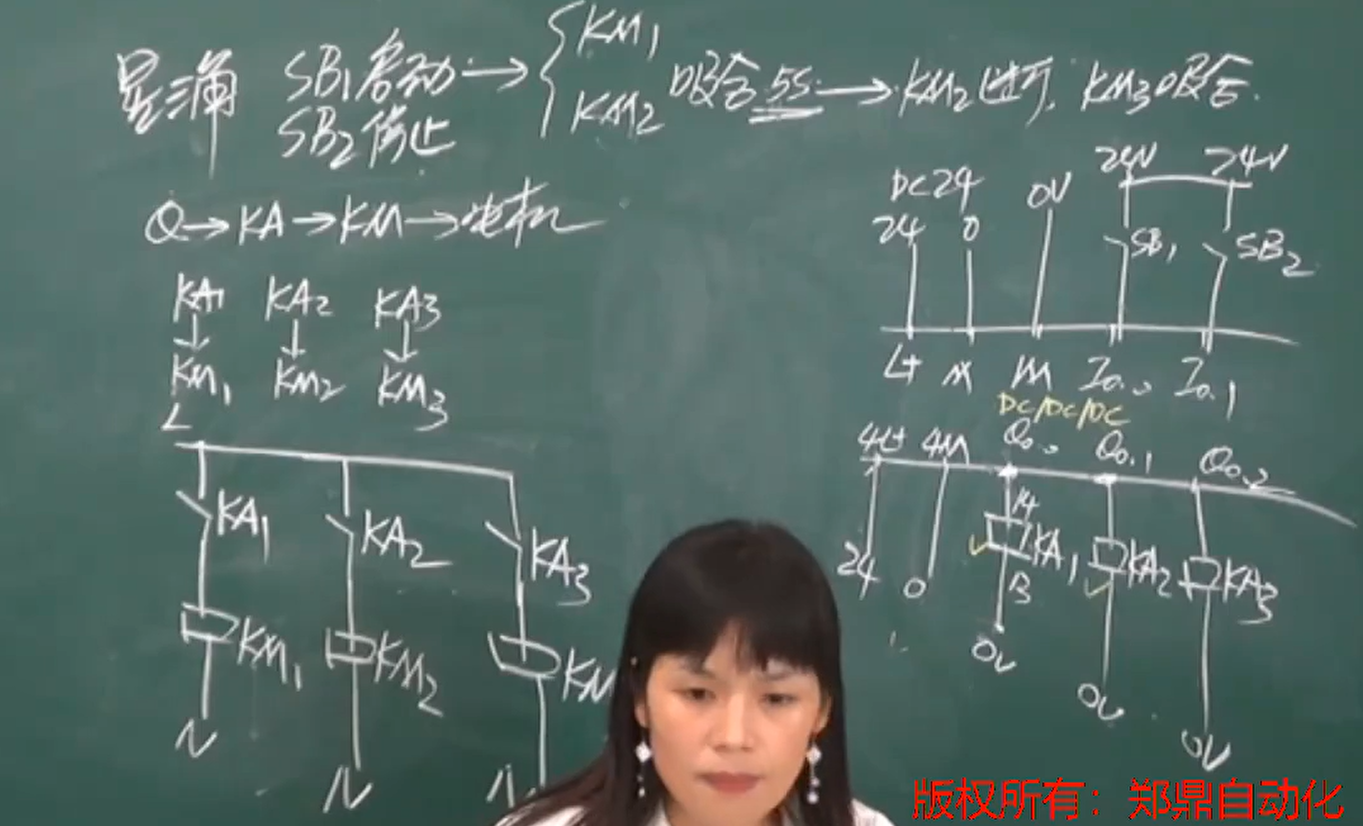 星三角 SB1启动 → { KM1 KM2 吸合 5S → KM2断开, KM3吸合.
SB2停止
Q→KA→KM→电机
KA1 KA2 KA3
KM1 KM2 KM3
L
KA1 KA2 KA3
KM1 KM2 KM
N N N
DC24 0V 24V 24V
24 0 SB1 SB2
L+ M M I0.0 I0.1
DC/DC/DC
4L+ 4M Q0.0 Q0.1 Q0.2
24 0 14 KA1 KA2 KA3
13
0V 0V 0V
版权所有：郑鼎自动化